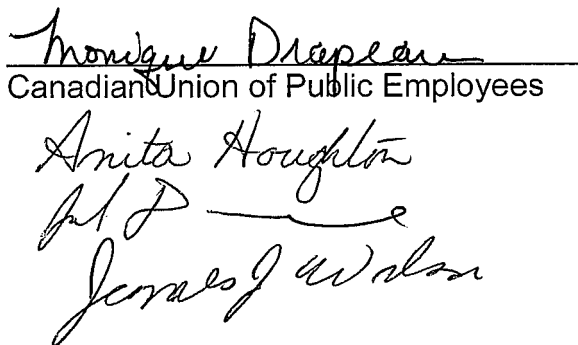 Monique Drapeau
Canadian Union of Public Employees
Anita Houghton
James J Wilson